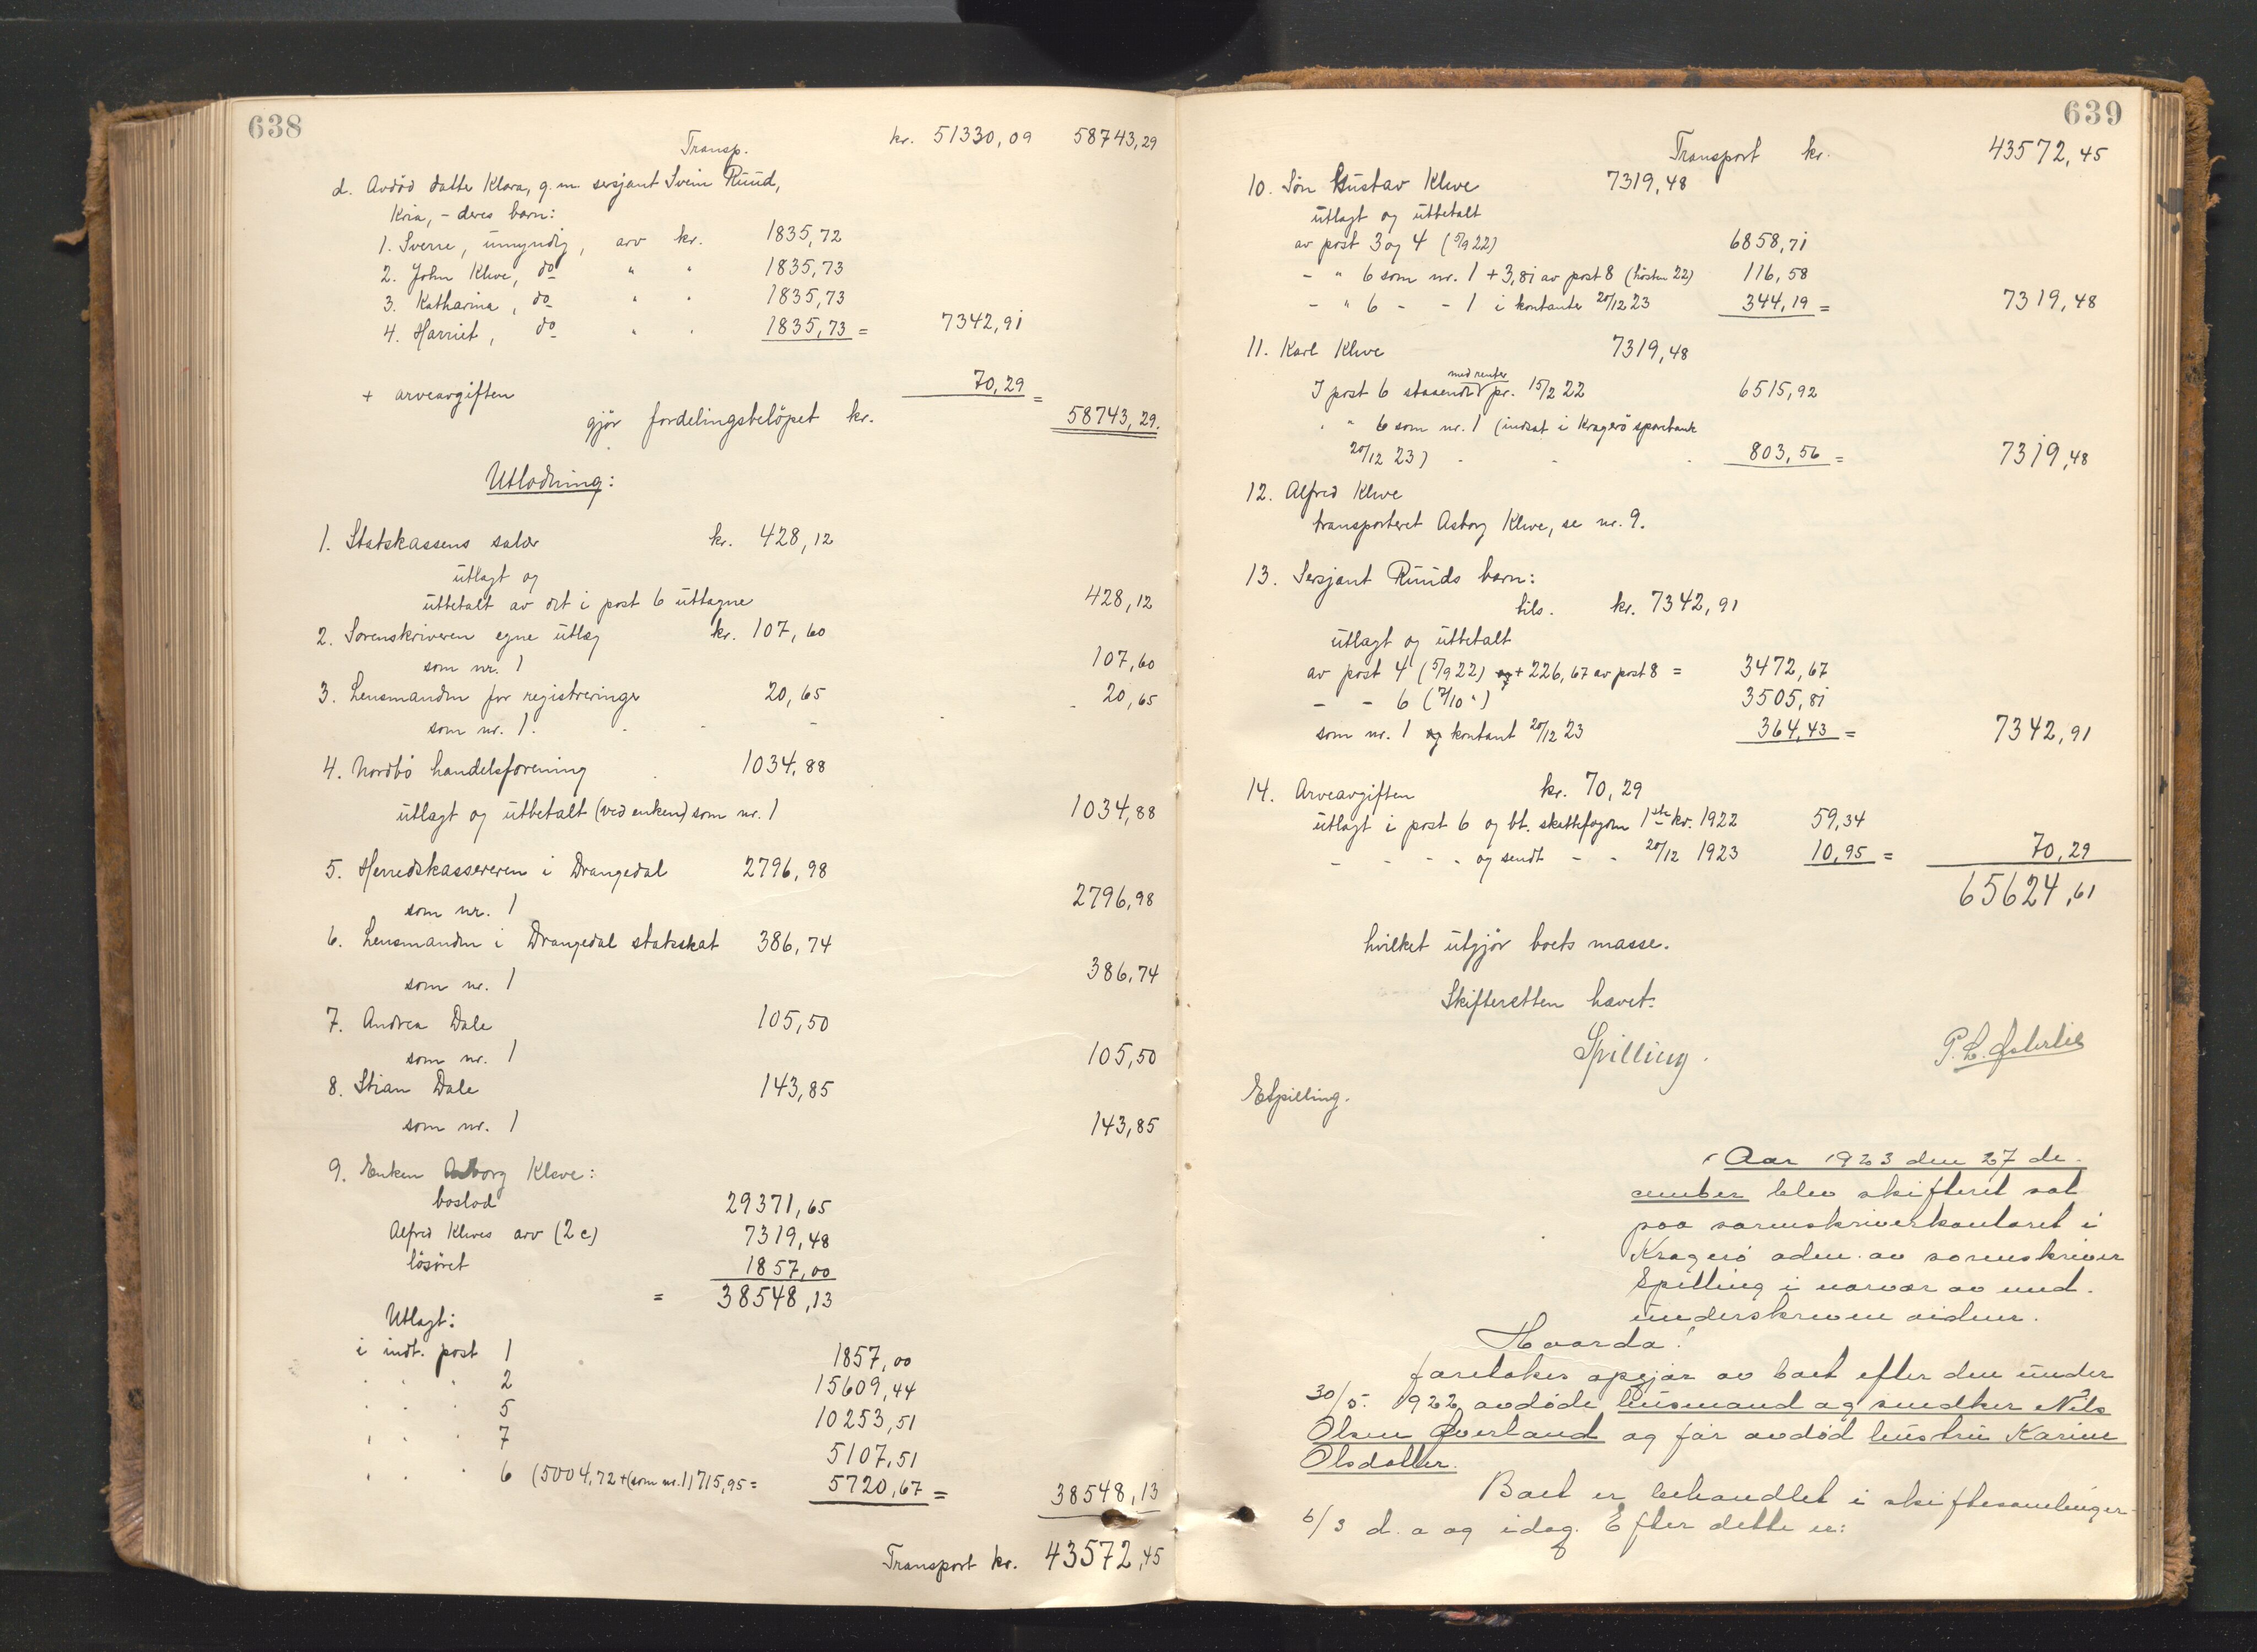 638
Transp. kr. 51330,09 58743,29
d. Avdød datter Klara, g.m. sersjant Svein Ruud,
Kria, - deres barn:
1. Sverre, umyndig, arv kr. 1835,72
2. John Kleve, do " " 1835,73
3. Katharina, do " " 1835,73
4. Harriet, do " " 1835,73 = 7342,91
+ arveavgiften 70,29 =
gjør fordelingsbeløpet kr. 58743,29.
Utlodning:
1. Statskassens salær kr. 428,12
utlagt og
utbetalt av det i post 6 uttagne 428,12
2. Sorenskriveren egne utlæg kr. 107,60
som nr. 1 107,60
3. Lensmanden for registreringe 20,65 - 20,65
som nr. 1. - - -
4. Nordbø handelsforening 1034,88
utlagt og utbetalt (ved enken) som nr. 1 1034,88
5. Herredskassereren i Drangedal 2796,98
som nr. 1 2796,98
6. Lensmanden i Drangedal statsskat 386,74
som nr. 1 386,74
7. Andrea Dale 105,50
som nr. 1 105,50
8. Stian Dale 143,85
som nr. 1 143,85
9. Enken Asborg Kleve:
boslod 29371,65
Alfred Kleves arv (2 c) 7319,48
løsøret 1857,00
= 38548,13
Utlagt:
i indt. post 1 1857,00
" " " 2 15609,44
" " " 5 10253,51
" " " 7 5107,51
" " " 6 (5004,72 + (som nr. 1) 715,95 = 5720,67 = 38548,13
Transport kr. 43572,45
639
Transport kr. 43572,45
10. Søn Gustav Kleve 7319,48
utlagt og utbetalt
av post 3 og 4 (5/9 22) 6858,71
- " 6 som nr. 1 + 3,81 av post 8 (høsten 22) 116,58
- " 6 - - 1 i kontanter 20/12 23 344,19 = 7319,48
11. Karl Kleve 7319,48
I post 6 staaende med renter pr. 15/2 22 6515,92
" " 6 som nr. 1 (indsat i Kragerø sparebank
20/12 23) - - - 803,56 = 7319,48
12. Alfred Kleve
transporteret Asborg Kleve, se nr. 9.
13. Sersjant Ruuds barn:
tils. kr. 7342,91
utlagt og utbetalt
av post 4 (5/9 22) + 226,67 av post 8 = 3472,67
- - 6 (7/10 ") 3505,81
som nr. 1 og kontant 20/12 23 364,43 = 7342,91
14. Arveavgiften kr. 70,29
utlagt i post 6 og bt. skattefogden 1ste kv. 1922 59,34
- - - - og sendt - - 20/12 1923 10,95 = 70,29
65624,61
hvilket utgjør boets masse.
Skifteretten hævet.
Spilling. P. L. Østerlie
ESpilling.
Aar 1923 den 27 de-
cember blev skifteret sat
paa sorenskriverkontoret i
Kragerø adm. av sorenskriver
Spilling i nærvær av med-
underskreven vidner.
Hvorda!
foretokes opgjør av boet efter den under
30/5. 1922 avdøde husmand og snedker Nils
Olsen Øverland og før avdød hustru Karine
Olsdatter.
Boet er behandlet i skiftesamlinger
6/3 d. a og idag. Efter dette er: